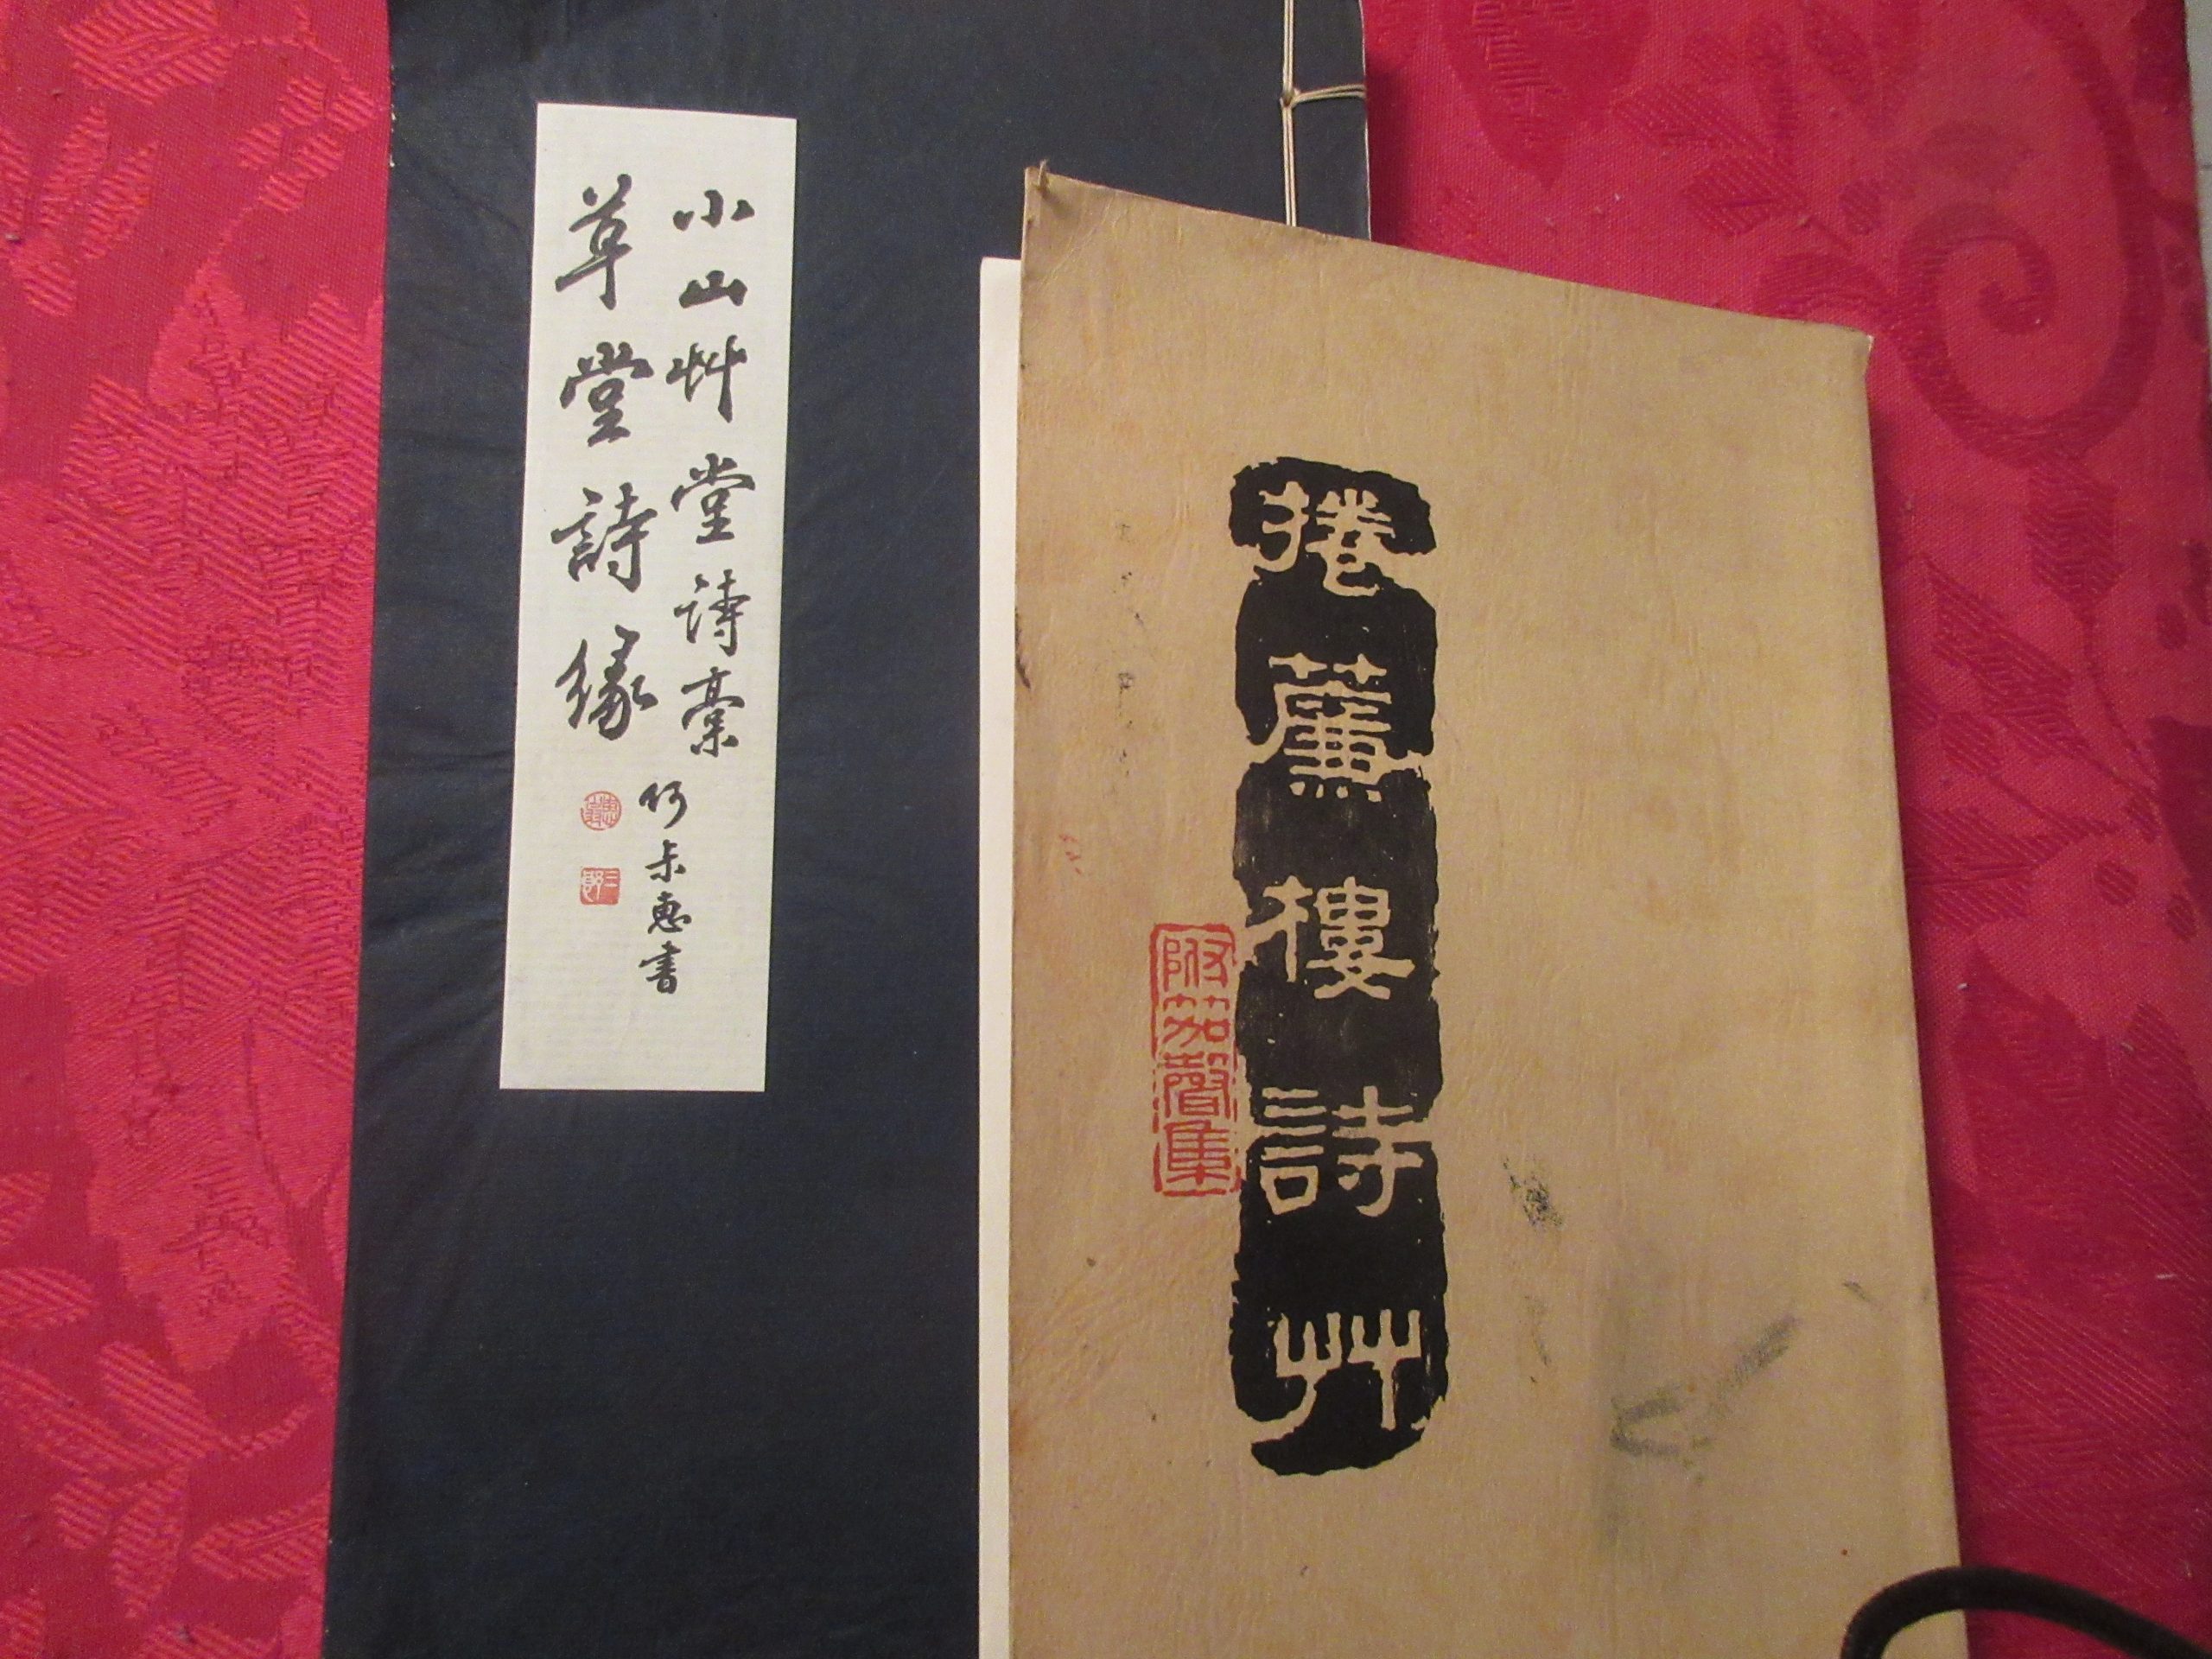 小山艸堂詩稾
草堂詩緣
何叔惠書
捲簾樓詩艸
附茄聲集